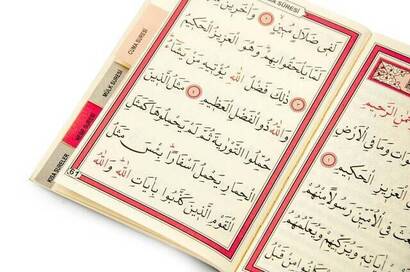 مٰنِ الرَّحِيمِ
وَاتِ وَمَا فِى الْاَرْضِ
الْعَزِيزِ الْحَكِيمِ
فِى الْاُمِّيّنَ رَسُولًا مِنْهُمْ
اٰيَاتِهِ وَيُزَكِّيهِمْ وَيُعَلِّمُهُمْ
مِنْ قَبْلُ
SÛRESİ
لَفِى ضَلَالٍ مُبِينٍ ٢ وَاٰخَرِينَ
لَمَّا يَلْحَقُوا بِهِمْ وَهُوَ الْعَزِيزُ الْحَكِيمُ
٣ ذٰلِكَ فَضْلُ اللّٰهِ يُؤْتِيهِ مَنْ يَشَاءُ
وَاللّٰهُ ذُو الْفَضْلِ الْعَظِيمِ ٤ مَثَلُ الَّذِينَ
حُمِّلُوا التَّوْرٰيةَ ثُمَّ لَمْ يَحْمِلُوهَا كَمَثَلِ
الْحِمَارِ يَحْمِلُ اَسْفَارًا بِئْسَ مَثَلُ
الْقَوْمِ الَّذِينَ كَذَّبُوا بِاٰيَاتِ اللّٰهِ وَاللّٰهُ
61
CUMA SÛRESİ
MÜLK SÛRESİ
NEBE SÛRESİ
KISA SÛRELER